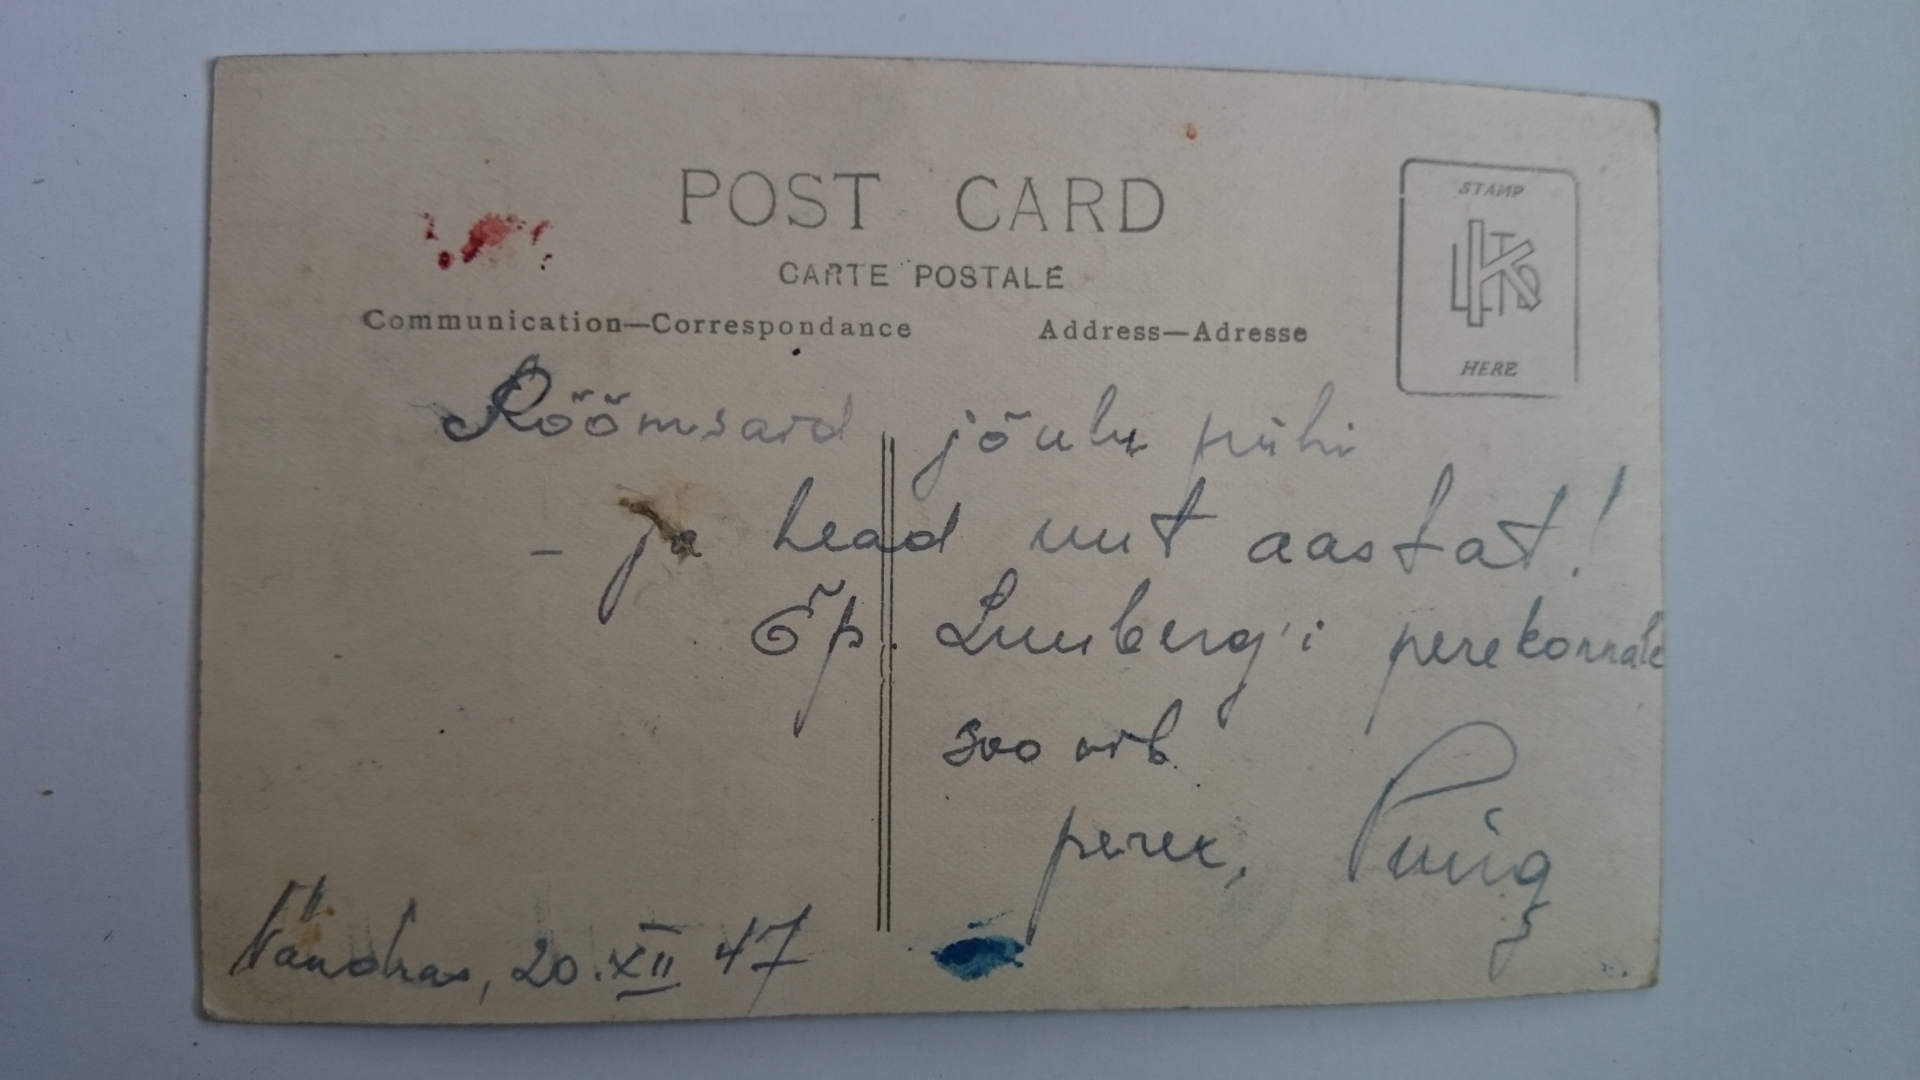 POST CARD
CARTE POSTALE
Communication—Correspondance
Address—Adresse
STAMP
HERE
Rõõmsaid jõulu pühi
- ja head uut aastat!
Õp. Lumberg'i perekonnale
soovib
perek, Puüg
Vändras, 20.XII 47